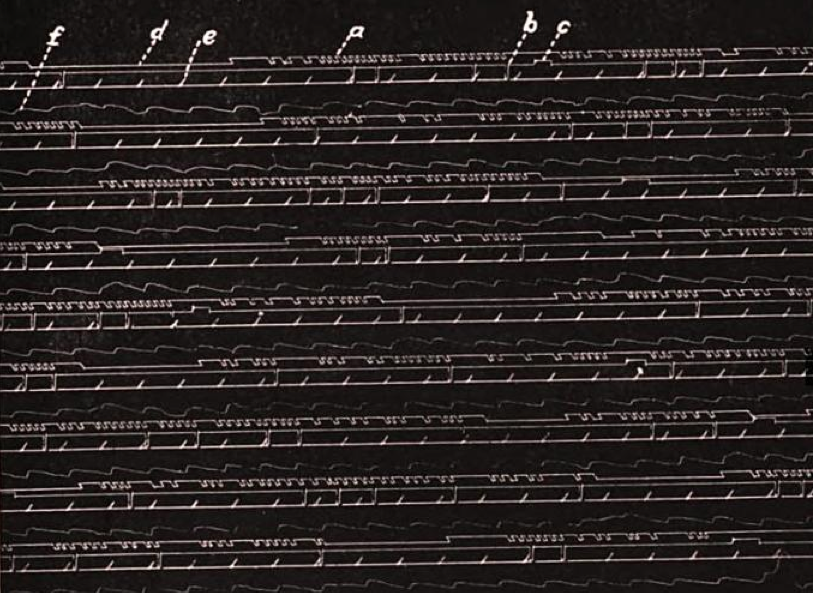 f d e a b c